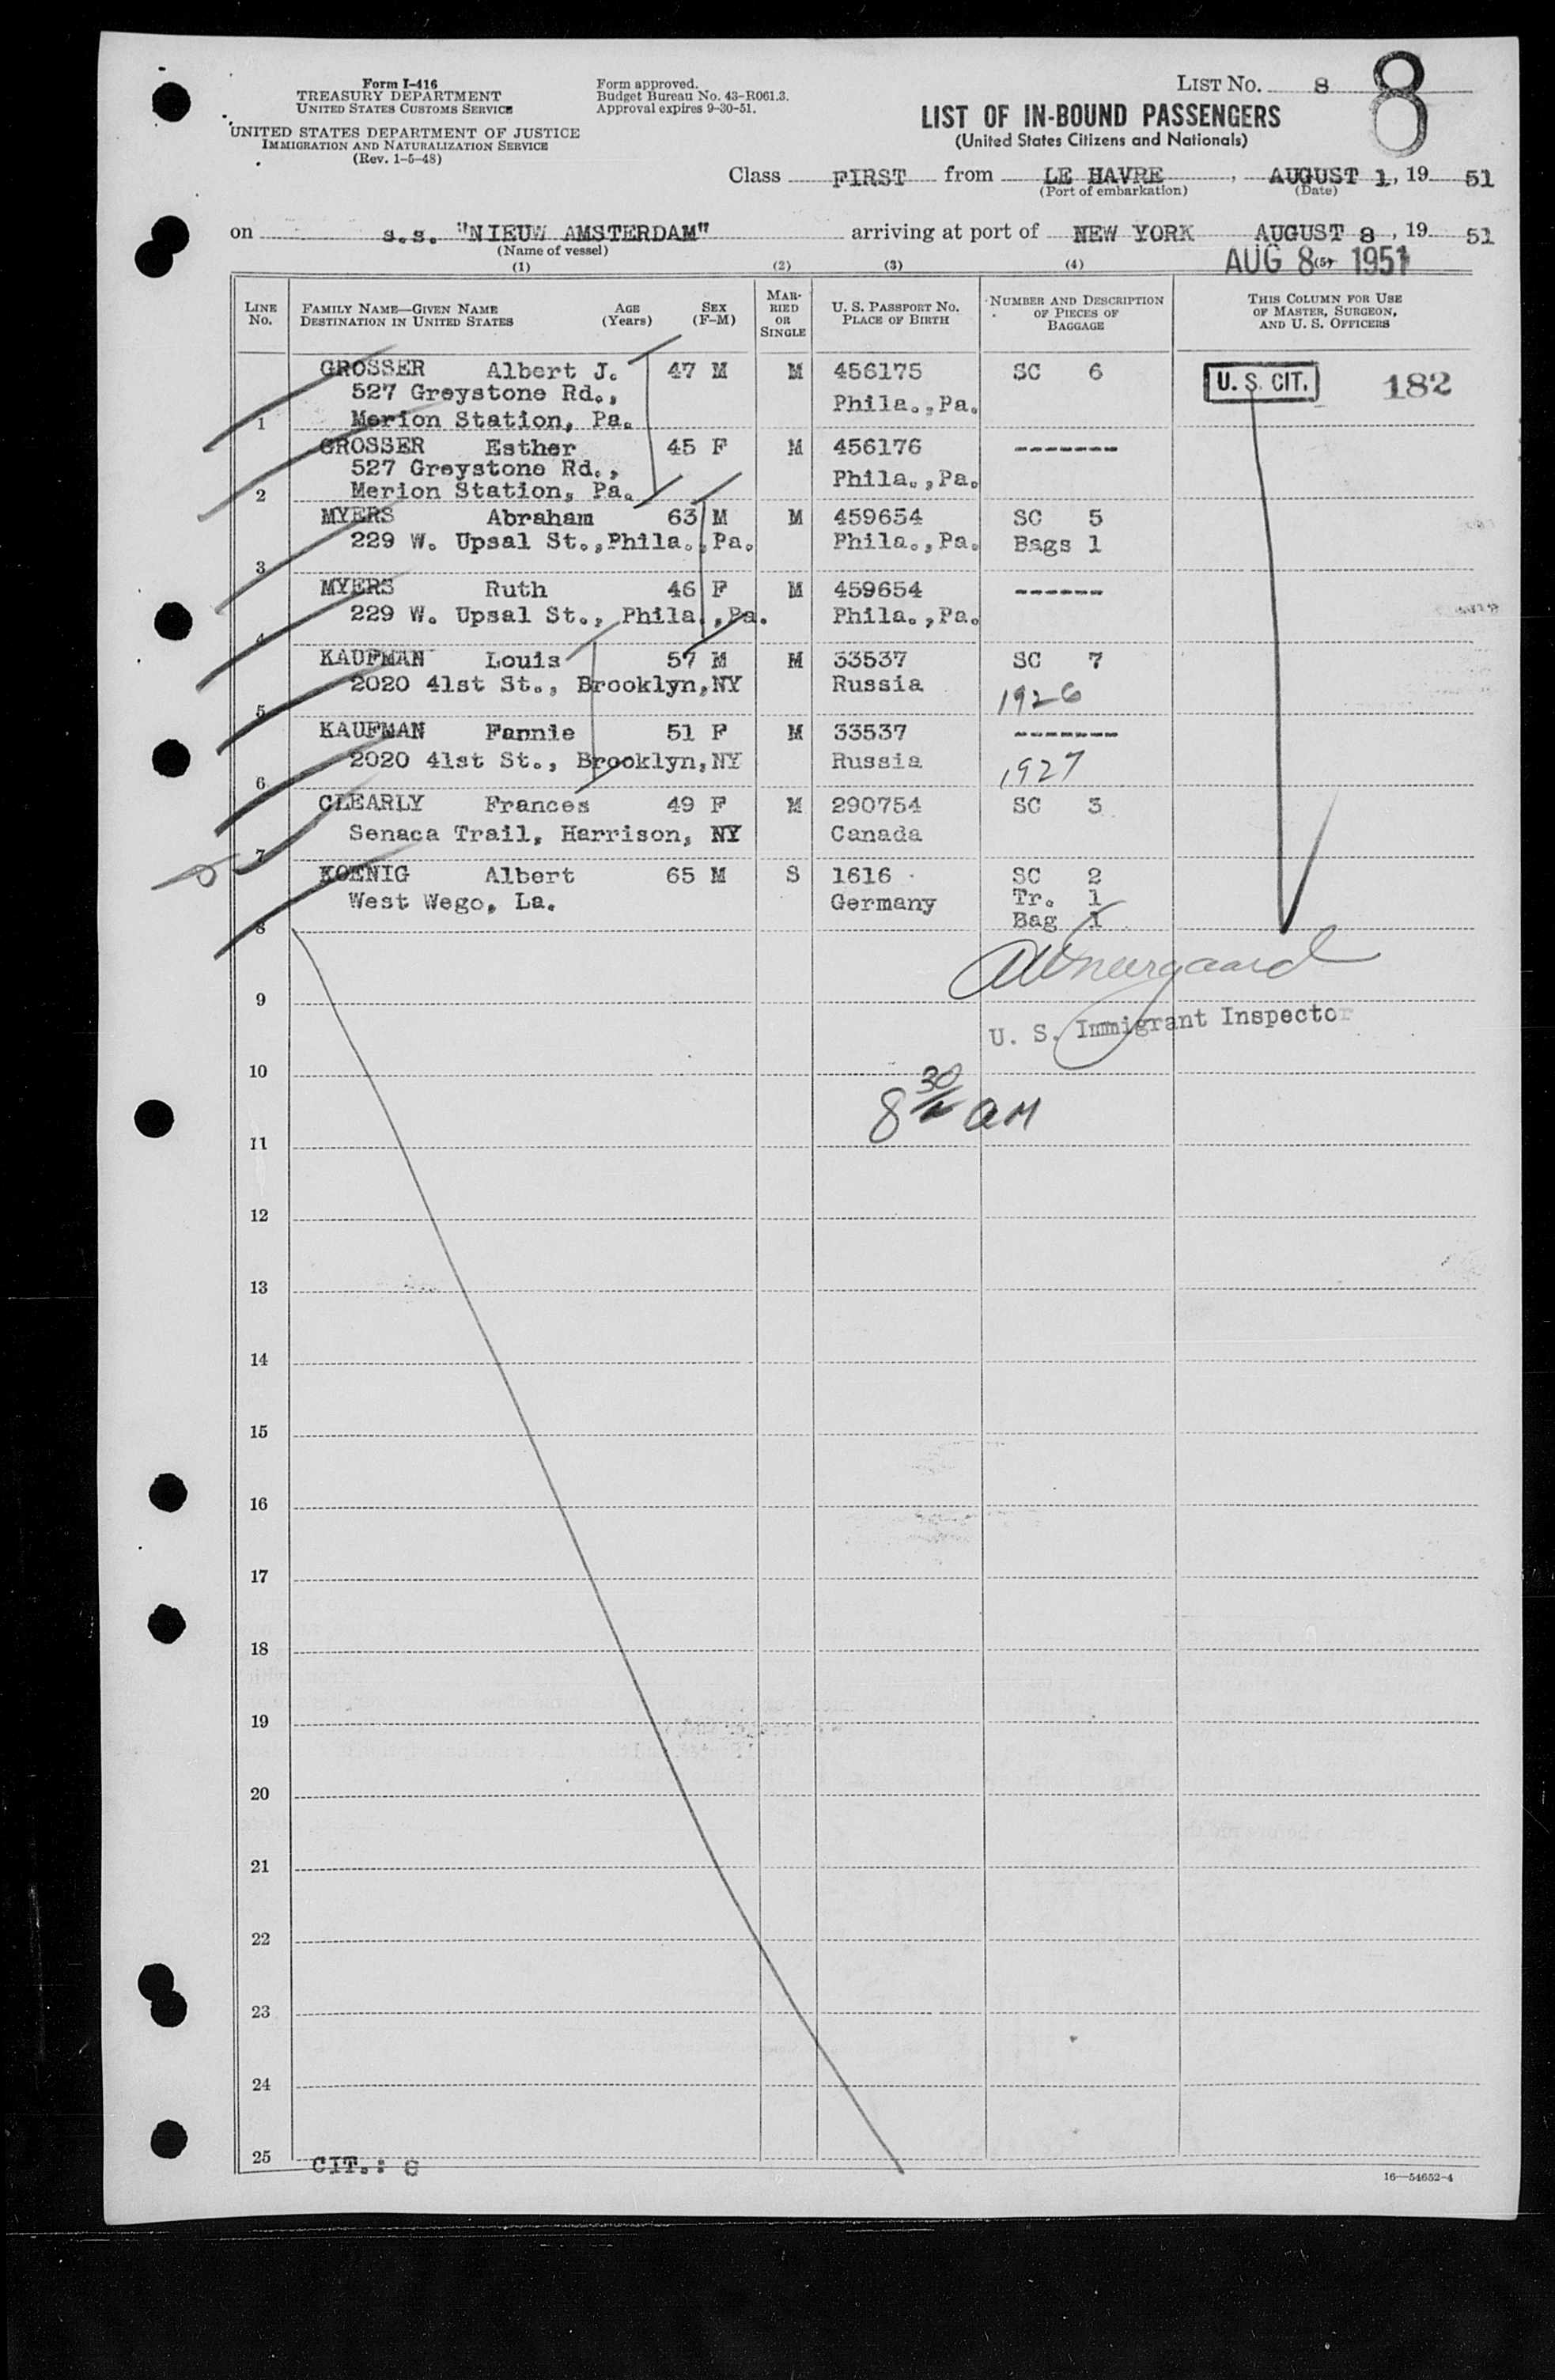 Form I-416
TREASURY DEPARTMENT
UNITED STATES CUSTOMS SERVICE
UNITED STATES DEPARTMENT OF JUSTICE
IMMIGRATION AND NATURALIZATION SERVICE
(Rev. 1-5-48)
Form approved.
Budget Bureau No. 43-R061.3.
Approval expires 9-30-51.
LIST NO. 8
8
LIST OF IN-BOUND PASSENGERS
(United States Citizens and Nationals)
Class FIRST from LE HAVRE, AUGUST 1, 19 51
(Port of embarkation) (Date)
on s.s. "NIEUW AMSTERDAM" arriving at port of NEW YORK AUGUST 8, 19 51
(Name of vessel)
AUG 8 1951
(1) (2) (3) (4) (5)
LINE No. FAMILY NAME—GIVEN NAME DESTINATION IN UNITED STATES AGE (Years) SEX (F-M) MARRIED OR SINGLE U. S. PASSPORT NO. PLACE OF BIRTH NUMBER AND DESCRIPTION OF PIECES OF BAGGAGE THIS COLUMN FOR USE OF MASTER, SURGEON, AND U. S. OFFICERS
GROSSER Albert J. 47 M M 456175 SC 6 U. S. CIT. 182
527 Greystone Rd., Phila.,Pa.
1 Merion Station, Pa.
GROSSER Esther 45 F M 456176 -------
527 Greystone Rd., Phila.,Pa.
2 Merion Station, Pa.
MYERS Abraham 63 M M 459654 SC 5
229 W. Upsal St.,Phila.,Pa. Phila.,Pa. Bags 1
3
MYERS Ruth 46 F M 459654 ------
229 W. Upsal St., Phila.,Pa. Phila.,Pa.
4
KAUFMAN Louis 57 M M 33537 SC 7
2020 41st St., Brooklyn,NY Russia 1926
5
KAUFMAN Fannie 51 F M 33537 -------
2020 41st St., Brooklyn,NY Russia 1927
6
CLEARLY Frances 49 F M 290754 SC 3
Senaca Trail, Harrison, NY Canada
7
KOENIG Albert 65 M S 1616 SC 2
West Wego, La. Germany Tr. 1
8 Bag 1
9
U. S. Immigrant Inspector
10
8 30 AM
11
12
13
14
15
16
17
18
19
20
21
22
23
24
25 CIT.: 8
16—54652-4